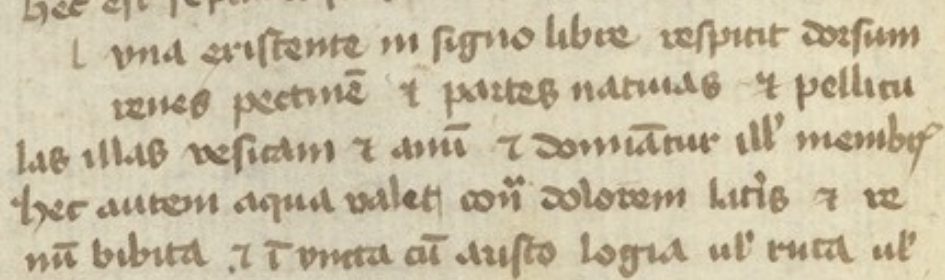 hec est
l vna existente in signo libre respicit dorsum
renes pectinē ⁊ partes natiuas ⁊ pellicu
las illas vesicam ⁊ anū ⁊ domīatur ill' membrꝭ
hec autem aqua valet conͣ dolorem latꝭis ⁊ re
nū bibita ⁊ ī vncta cū aristo logia ul' ruta ul'